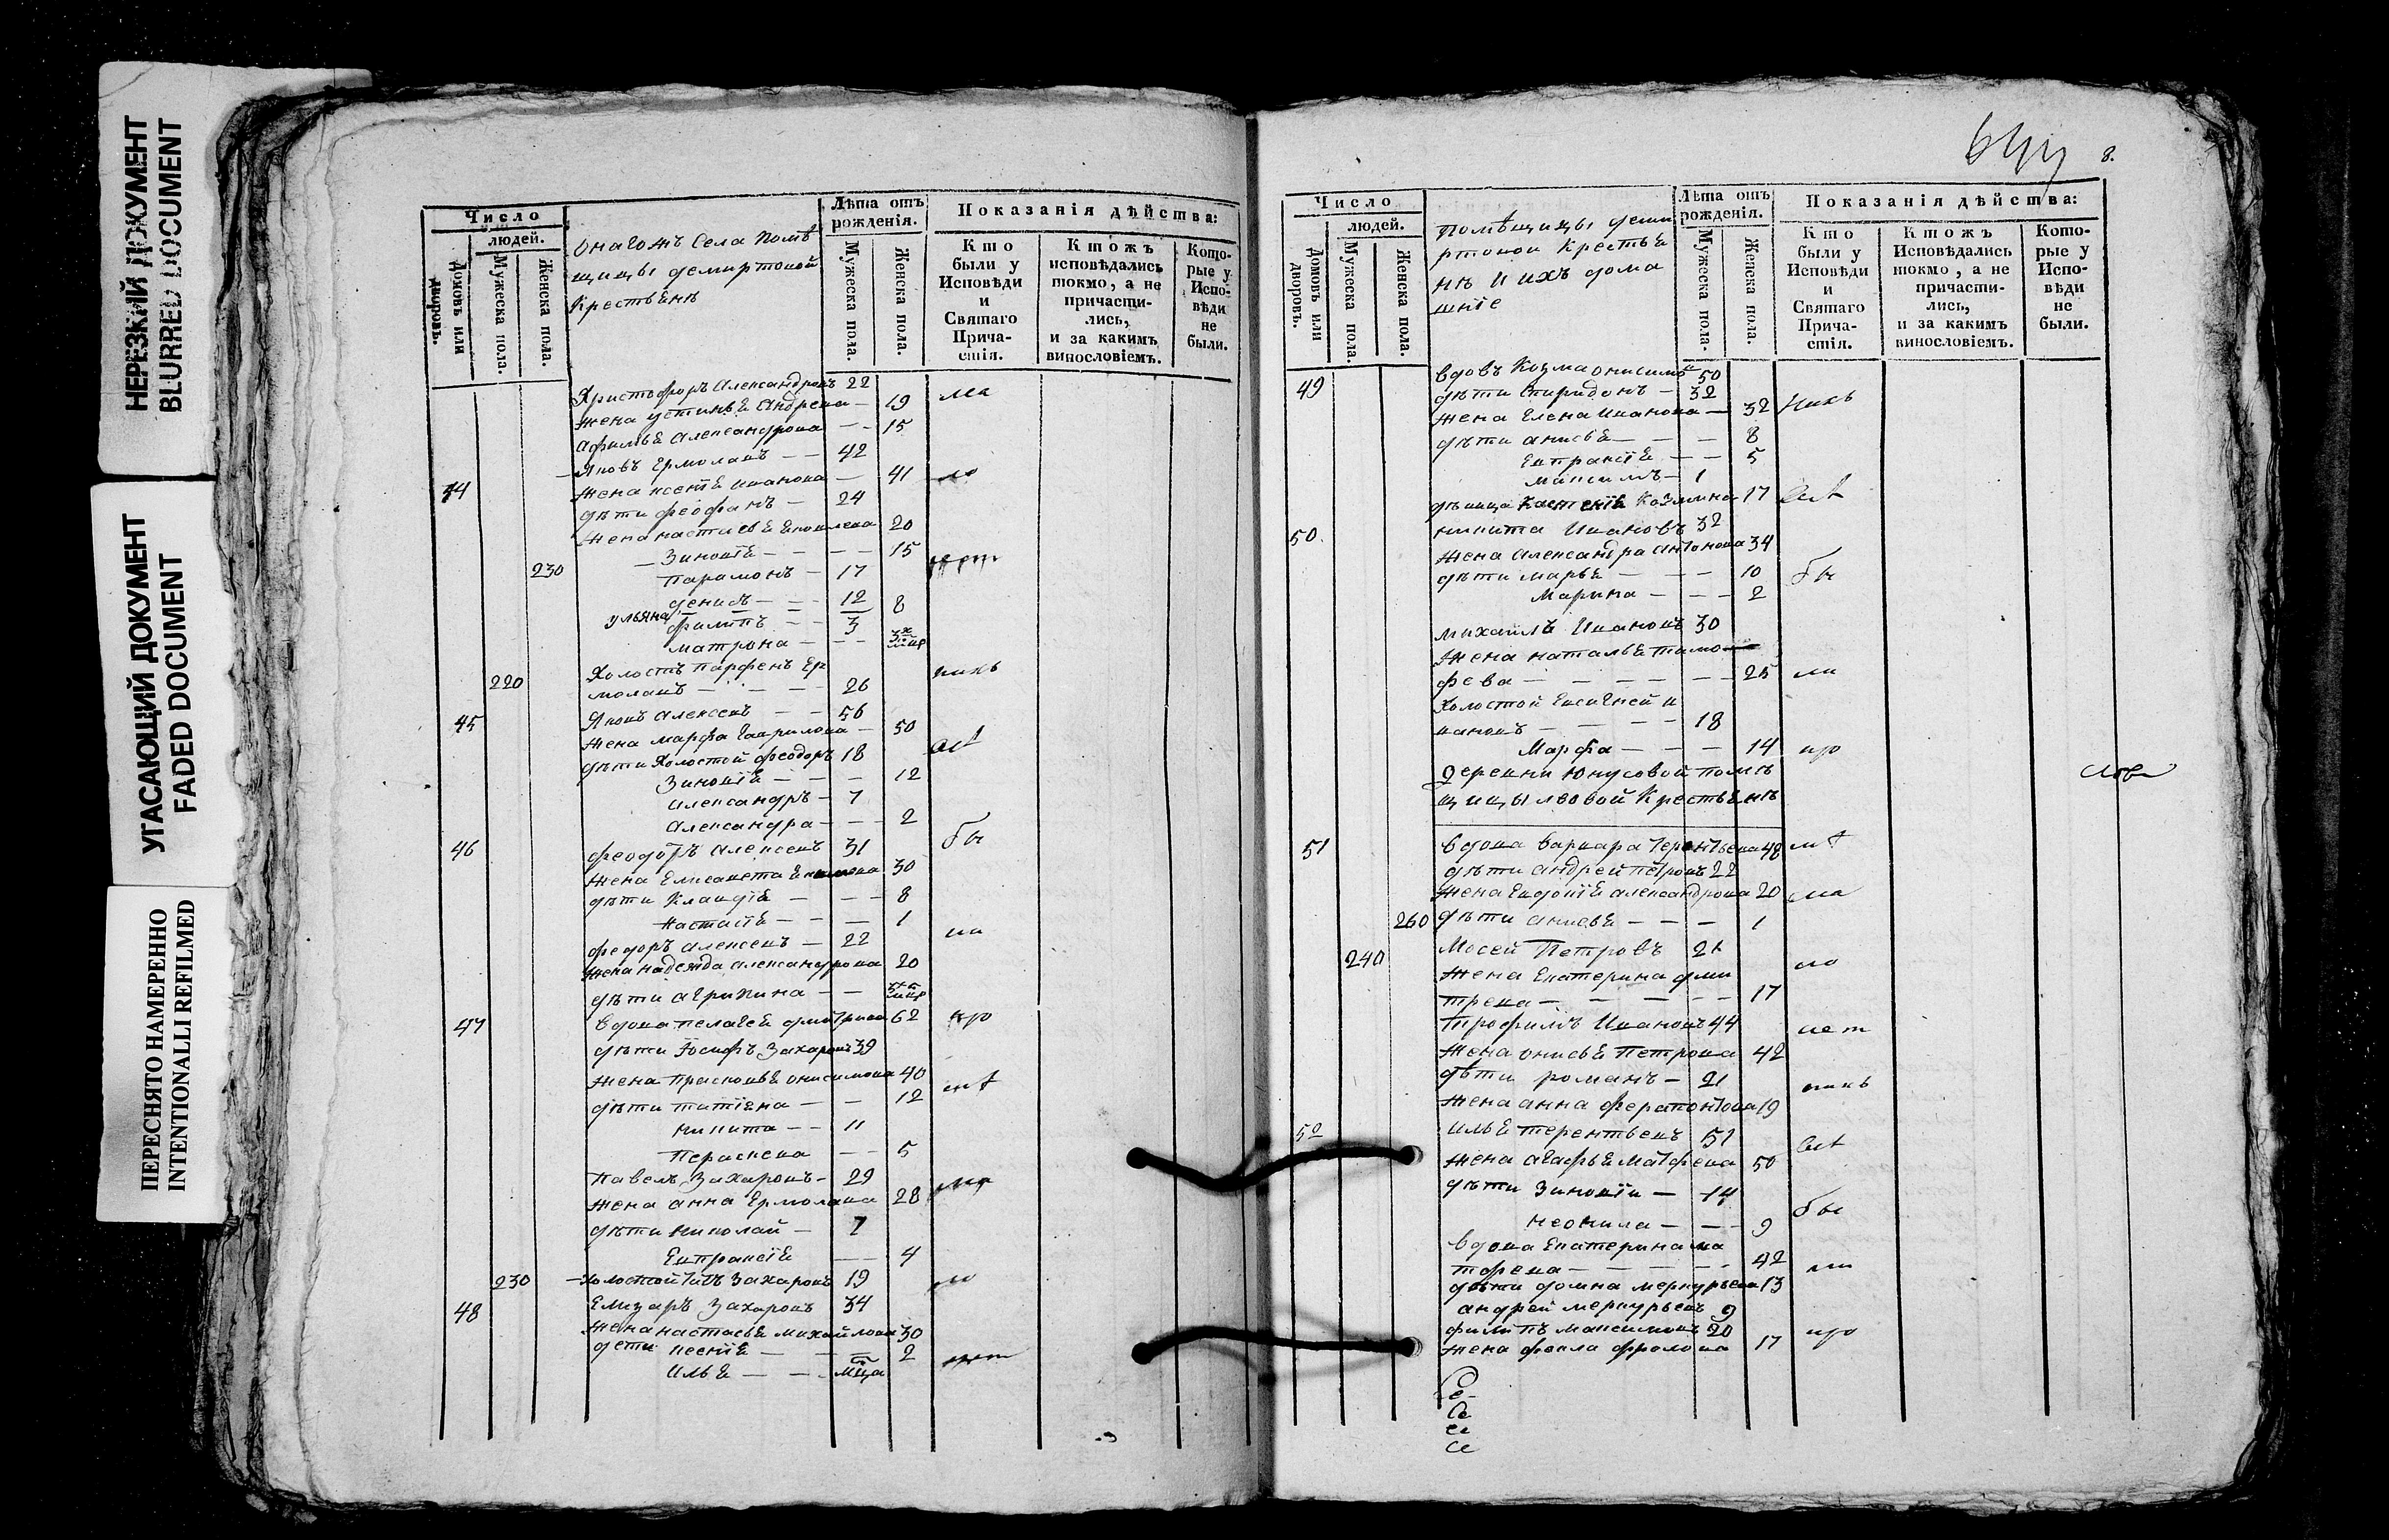 НЕРЕЗКИЙ ДОКУМЕНТ
BLURRED DOCUMENT
УГАСАЮЩИЙ ДОКУМЕНТ
FADED DOCUMENT
ПЕРЕСНЯТО НАМЕРЕННО
INTENTIONALLI REFILMED
Число
людей.
Домовъ или дворовъ.
Мужеска пола.
Женска пола.
онагожъ Села помѣ
щицы демиртовой
Крестьянъ
Лѣта отъ рожденія.
Мужеска пола.
Женска пола.
Показанія дѣйства:
Кто были у Исповѣди и Святаго Причастія.
Ктожъ исповѣдались токмо, а не причастились, и за какимъ винословіемъ.
Которые у Исповѣди не были.
Христофоръ Александровъ 22
жена устинья Андреева — 19
Афимья Александрова — — 15
34 Яковъ Ермолавъ — — 42
жена ксения иванова — 41
дѣти феофанъ — 24
Жена настасья 20
Зиновія — — — — 15
230 Парамонъ — 17
денисъ — — 12
ульяна 8
филипъ — — 3
матрона — — —
Холостъ парфенъ Ер
220 молавъ — — — 26
45 Яковъ Алексевъ — — 56
жена марфа гаврилова — 50
дѣти Холостой феодоръ 18
Зиновія — — — 12
Александръ — 7
Александра — — — 2
46 феодотъ Алексевъ 31
жена Елисавета 30
дѣти Клавдія — — — 8
Настасія — — — 1
федоръ Алексевъ — 22
жена надежда александрова 20
дѣти агрипина — —
47 вдова пелагея дмитриева 62
дѣти Іосифъ Захаровъ 39
жена Прасковья онисимова 40
дѣти татіяна — — — 12
никита — — 11
Парасковья — — 5
Павелъ Захаровъ — 29
жена анна Ермолава 28
дѣти николай — 7
Евпраксія — — 4
230 Холостой Титъ Захаровъ 19
48 Елизаръ Захаровъ 34
жена настасья михайлова 30
дети ксения — — — 2
илья — — — мца
8.
Число
людей.
Домовъ или дворовъ.
Мужеска пола.
Женска пола.
помѣщицы деми
ртовой Крестья
нъ и ихъ дома
шніе
Лѣта отъ рожденія.
Мужеска пола.
Женска пола.
Показанія дѣйства:
Кто были у Исповѣди и Святаго Причастія.
Ктожъ Исповѣдались токмо, а не причастились, и за какимъ винословіемъ.
Которые у Исповѣди не были.
49 вдовъ Козма онисимовъ 50
дѣти Спиридонъ — 32
жена Елена Иванова — 32
дѣти анисья — — — 8
Евпраксія — — 5
Максимъ — 1
дѣвица Козмина 17
50. никита Ивановъ 32
жена Александра антонова 34
дѣти марья — — — 10
Марина — — — 2
михаилъ Ивановъ 30
жена наталья тимо
фева — — — — — 25
Холостой Евсигней и
вановъ — — — — 18
Марфа — — — 14
деревни Юнусовой помѣ
щицы львовой Крестьянъ
51 вдова варвара Терентьева 48
дѣти андрей Петровъ 22
жена Евдокія александрова 20
260 дѣти анисья — — — 1
240 Мосей Петровъ 21
жена Екатерина дми
трева — — — — — 17
Трофимъ Ивановъ 44
жена онисья Петрова 42
дѣти романъ — 21
жена анна Ферапонтова 19
52 илья терентьевъ 51
жена агафья Матфева 50
дѣти Зиновіи — 14
неонила — — — 9
вдова Екатерина ма
тфева — — — — — 42
дѣти домна меркурьева 13
андрей меркурьевъ 9
филипъ максимовъ 20
жена фекла фролова 17